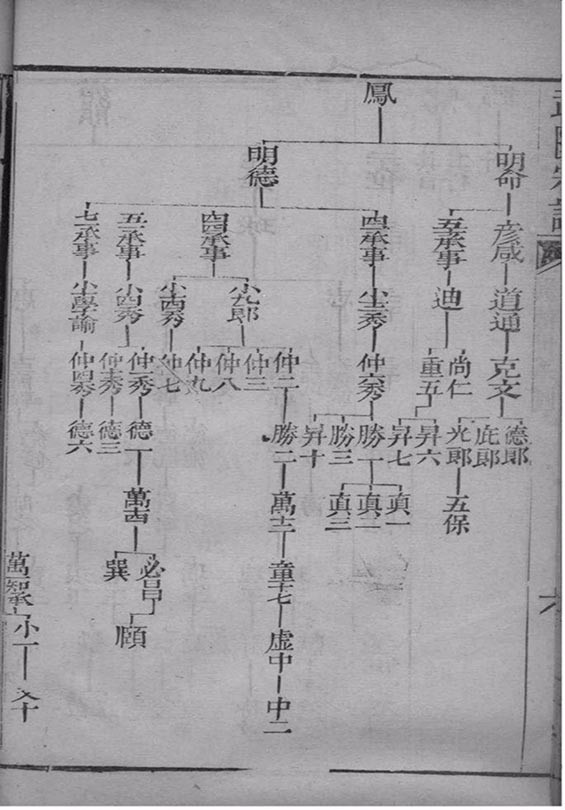 鳳
明命
彦咸
道通
克文
德郎
庇郎
五承事
迪
尚仁
光郎
五保
重五
昇六
昇七
明德
四承事
仲六秀
勝一
真一
真二
真三
勝三
昇十
小九郎
仲二
勝二
童十七
虛中
中二
仲三
仲八
仲九
小西秀
仲七
五一承事
小四秀
仲一秀
德一
萬西
必昌
頤
巽
仲五秀
德三
七一承事
小學諭
仲四秀
德六
小一